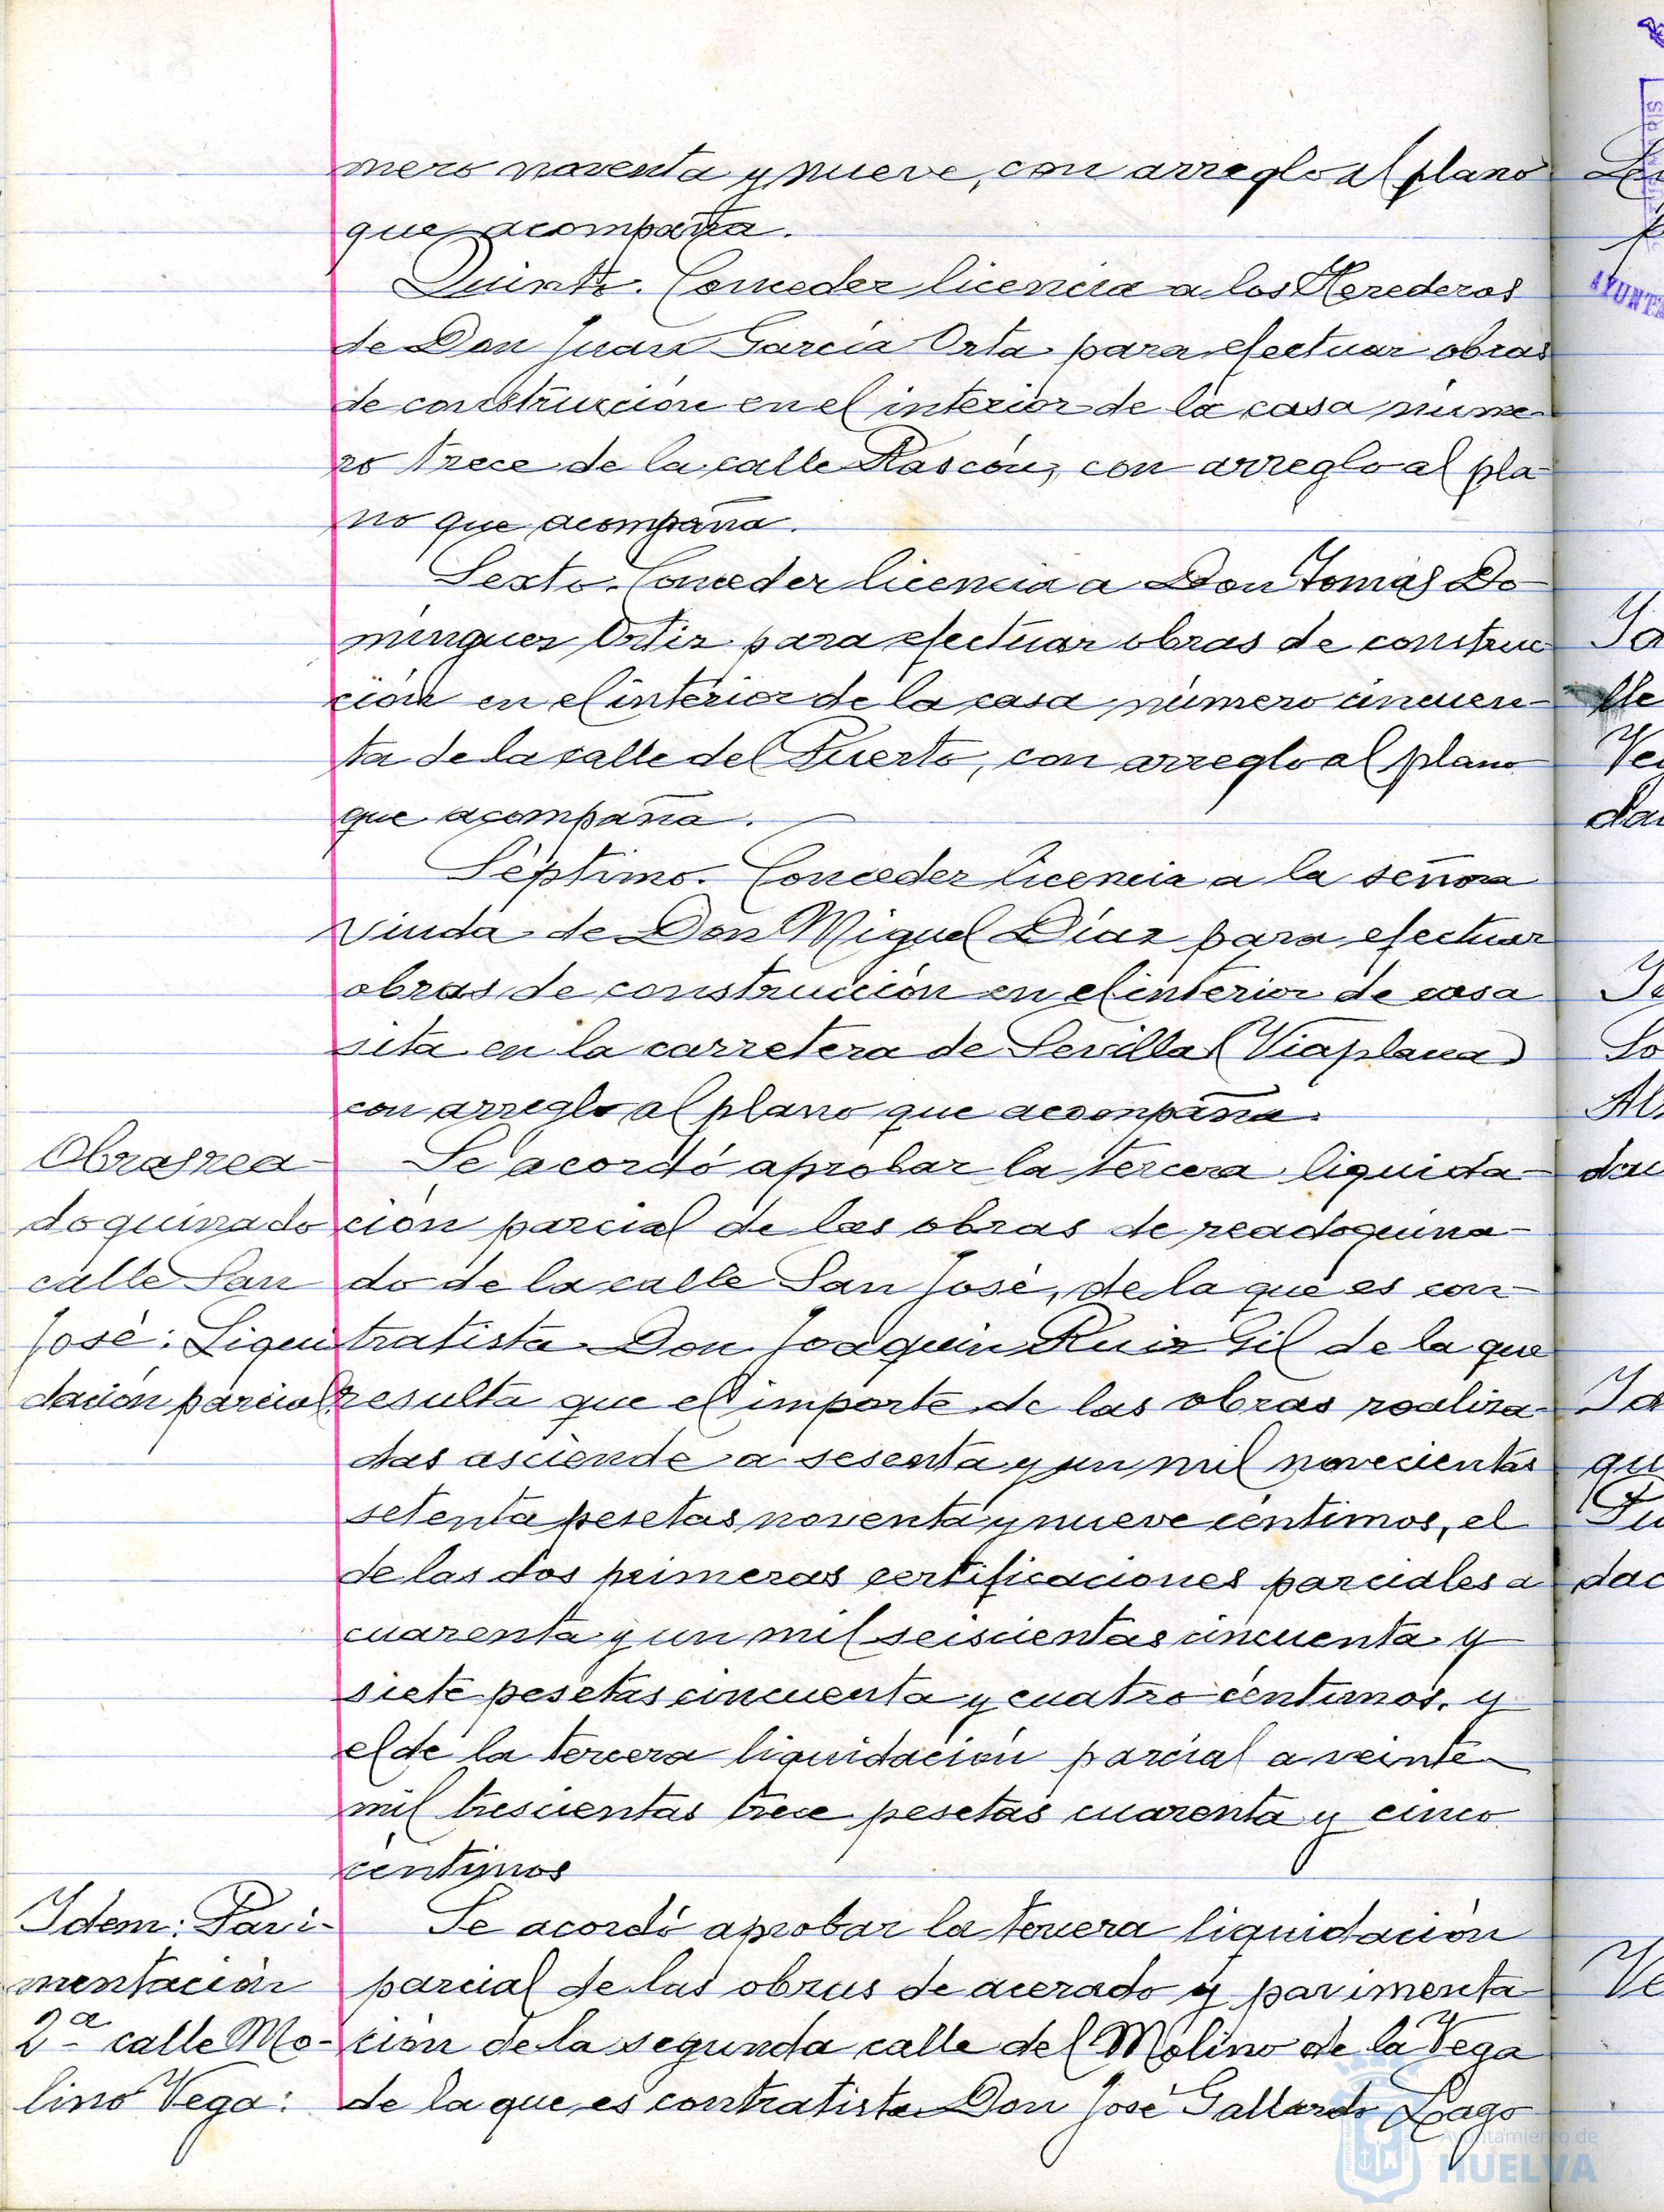 mero noventa y nueve, con arreglo al plano
que acompaña.
Quinto. Conceder licencia a los Herederos
de Don Juan García Orta para efectuar obras
de construcción en el interior de la casa núme-
ro trece de la calle Rascón, con arreglo al pla-
no que acompaña.
Sexto. Conceder licencia a Don Tomás Do-
minguez Ortiz para efectuar obras de construc-
ción en el interior de la casa número cincuen-
ta de la calle del Puerto, con arreglo al plano
que acompaña.
Séptimo. Conceder licencia a la señora
viuda de Don Miguel Díaz para efectuar
obras de construcción en el interior de casa
sita en la carretera de Sevilla (Viaplana)
con arreglo al plano que acompaña.
Obras rea-
doquinado
calle San
José: Liqui
dación parcial.
Se acordó aprobar la tercera liquida-
ción parcial de las obras de readoquina-
do de la calle San José, de la que es con-
tratista Don Joaquin Ruiz Gil de la que
resulta que el importe de las obras realiza-
das asciende a sesenta y un mil novecientas
setenta pesetas noventa y nueve céntimos, el
de las dos primeras certificaciones parciales a
cuarenta y un mil seiscientas cincuenta y
siete pesetas cincuenta y cuatro céntimos, y
el de la tercera liquidación parcial a veinte
mil trescientas trece pesetas cuarenta y cinco
céntimos
Idem: Pavi-
mentación
2ª calle Mo-
lino Vega:
Se acordó aprobar la tercera liquidación
parcial de las obras de acerado y pavimenta-
ción de la segunda calle del Molino de la Vega
de la que es contratista Don José Gallardo Lago
Ayuntamiento de
HUELVA